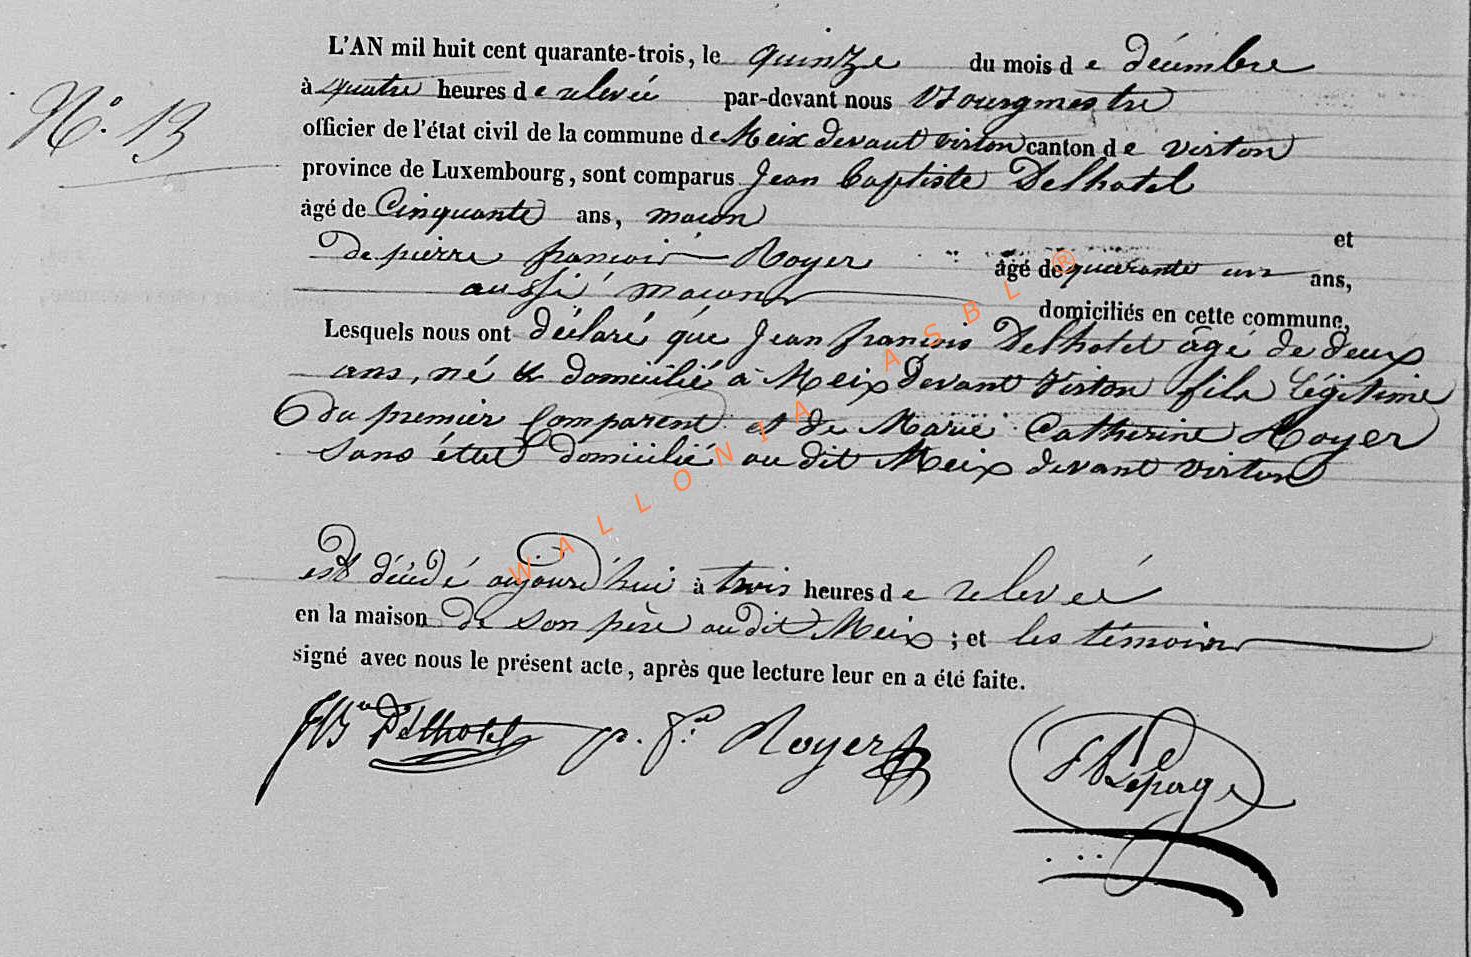 N.° 13
L'AN mil huit cent quarante-trois, le quinze du mois d e décembre
à quatre heures d e relevée par-devant nous Bourgmestre
officier de l'état civil de la commune d e Meix devant virton canton d e virton
province de Luxembourg, sont comparus Jean baptiste Delhotel
âgé de Cinquante ans, macon et
de pierre francois Royer âgé de quarante un ans,
aussi macon domiciliés en cette commune,
Lesquels nous ont déclaré que Jean francois Delhotel âgé de deux
ans, né & domicilié à Meix devant Virton fils légitime
du premier Comparent et de Marie Catherine Royer
sans état domicilié au dit Meix devant virton
est décédé aujourd'hui à trois heures d e relevée
en la maison de son père au dit Meix ; et les témoins
signé avec nous le présent acte, après que lecture leur en a été faite.
JBte Delhotel p. f. Royer Lepage
WALLONIA ASBL ®